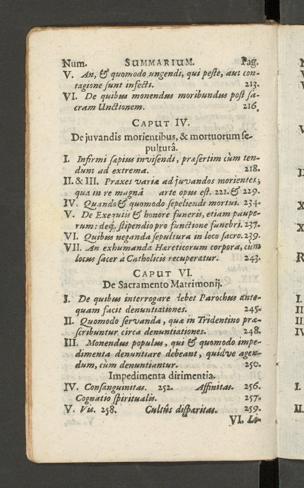 Num. SUMMARIUM. Pag.
V. An, & quomodo ungendi, qui peste, aut con-
tagione sunt infecti. 213.
VI. De quibus monendus moribundus post sa-
cram Unctionem. 216.
CAPUT IV.
De juvandis morientibus, & mortuorum se-
pultura.
I. Infirmi sæpius invisendi, præsertim cùm ten-
dunt ad extrema. 218.
II. & III. Praxes variæ ad juvandos morientes,
qua in re magnâ arte opus est. 221. & 229.
IV. Quando & quomodo sepeliendi mortui. 234.
V. De Exequiis & honore funeris, etiam paupe-
rum: deq; stipendio pro functione funebri. 237.
VI. Quibus neganda sepultura in loco sacro. 239.
VII. An exhumanda Hæreticorum corpora, cùm
locus sacer à Catholicis recuperatur. 243.
CAPUT VI.
De Sacramento Matrimonij.
I. De quibus interrogare debet Parochus ante-
quam faciat denuntiationes. 245.
II. Quomodo servanda, quæ in Tridentino præ-
scribuntur circa denuntiationes. 248.
III. Monendus populus, qui & quomodo impe-
dimenta denuntiare debeant, quidve agen-
dum, cùm denuntiantur. 250.
Impedimenta dirimentia.
IV. Consanguinitas. 252. Affinitas. 256.
Cognatio spiritualis. 257.
V. Vis. 258. Cultûs disparitas. 259.
VI. Li-